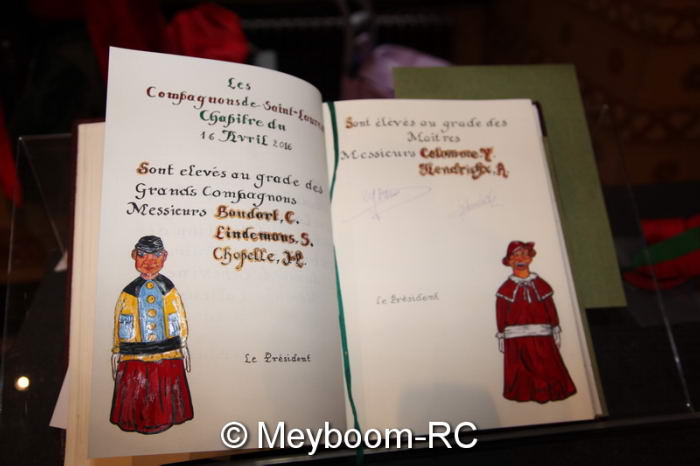 Les
Compagnons de Saint-Laurent
Chapitre du
16 Avril 2016
Sont élevés au grade des
Grands Compagnons
Messieurs Boudart, C.
Lindemans, S.
Chopelle, J.P.
Le Président
Sont élevés au grade des
Maitres
Messieurs Calomme, Y.
Hendrickx, A.
Le Président
© Meyboom-RC